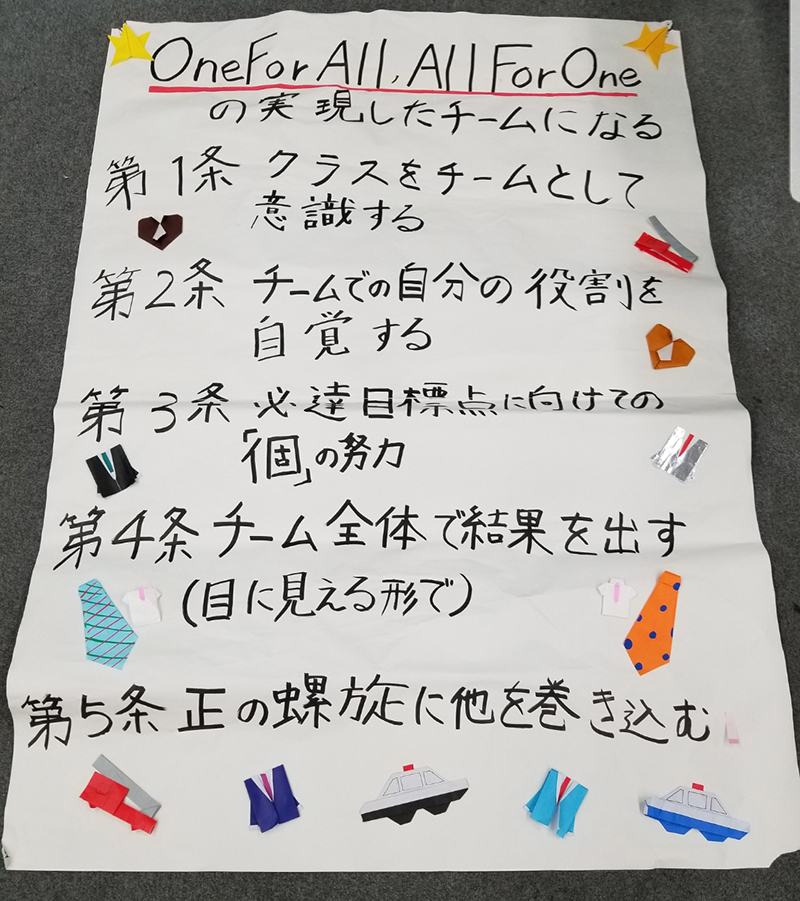 OneFor All, All ForOne
の実現したチームになる
第1条 クラスをチームとして
意識する
第2条 チームでの自分の役割を
自覚する
第3条 必達目標点に向けての
「個」の努力
第4条 チーム全体で結果を出す
(目に見える形で)
第5条 正の螺旋に他を巻き込む